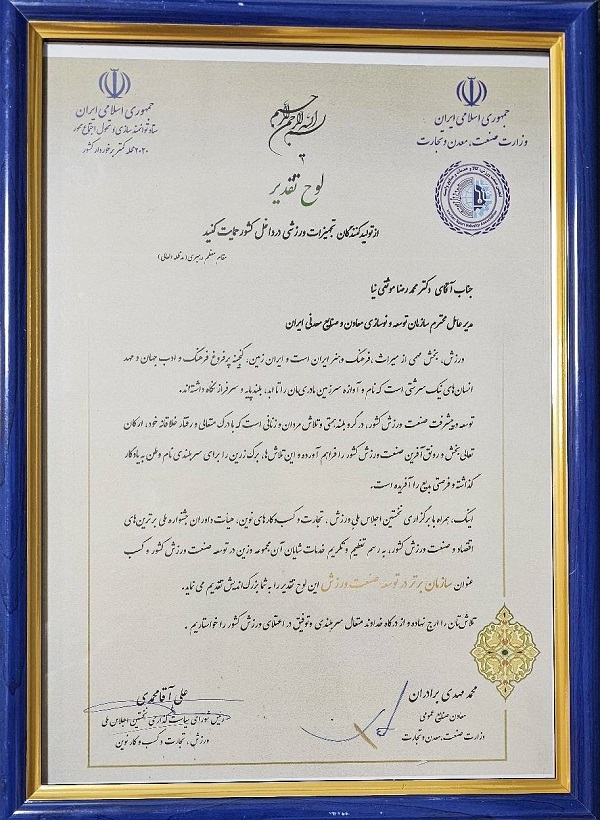 جمهوری اسلامی ایران
وزارت صنعت، معدن و تجارت
بسم الله الرحمن الرحیم
جمهوری اسلامی ایران
ستاد توانمندسازی و تحول اجتماع محور
۲۰۲۰ محله کمتر برخوردار کشور
لوح تقدیر
از تولیدکنندگان تجهیزات ورزشی در داخل کشور حمایت کنید
مقام معظم رهبری (مدظله العالی)
جناب آقای دکتر محمدرضا موثقی نیا
مدیر عامل محترم سازمان توسعه و نوسازی معادن و صنایع معدنی ایران
ورزش، بخش مهمی از میراث، فرهنگ و هنر ایران است و ایران زمین، گنجینه پرفروغ فرهنگ و ادب جهان و مهد
انسان‌های نیک سرشتی است که نام و آوازه سرزمین مادری‌مان را تا ابد، بلندپایه و سرفراز نگاه داشته‌اند.
توسعه و پیشرفت صنعت ورزش کشور، در گرو بلندهمتی و تلاش مردان و زنانی است که با درک متعالی و رفتار خلاقانه خود، ارکان
تعالی بخش و رونق آفرین صنعت ورزش کشور را فراهم آورده و این تلاش‌ها، برگ زرین را برای سربلندی نام وطن به یادگار
گذاشته و فرصتی بدیع را آفریده است.
اینک، همراه با برگزاری نخستین اجلاس ملی ورزش، تجارت و کسب و کارهای نوین، هیأت داوران جشنواره ملی برترین‌های
اقتصاد و صنعت ورزش کشور، به رسم تعظیم و تکریم خدمات شایان آن مجموعه وزین در توسعه صنعت ورزش کشور و کسب
عنوان سازمان برتر در توسعه صنعت ورزش این لوح تقدیر را به شما بزرگ اندیش تقدیم می نماید.
تلاش‌تان را ارج نهاده و از درگاه خداوند متعال سربلندی و توفیق در اعتلای ورزش کشور را خواستاریم.
محمد مهدی برادران
معاون صنایع عمومی
وزارت صنعت، معدن و تجارت
علی آقامحمدی
رئیس شورای سیاست گذاری نخستین اجلاس ملی
ورزش، تجارت و کسب و کار نوین